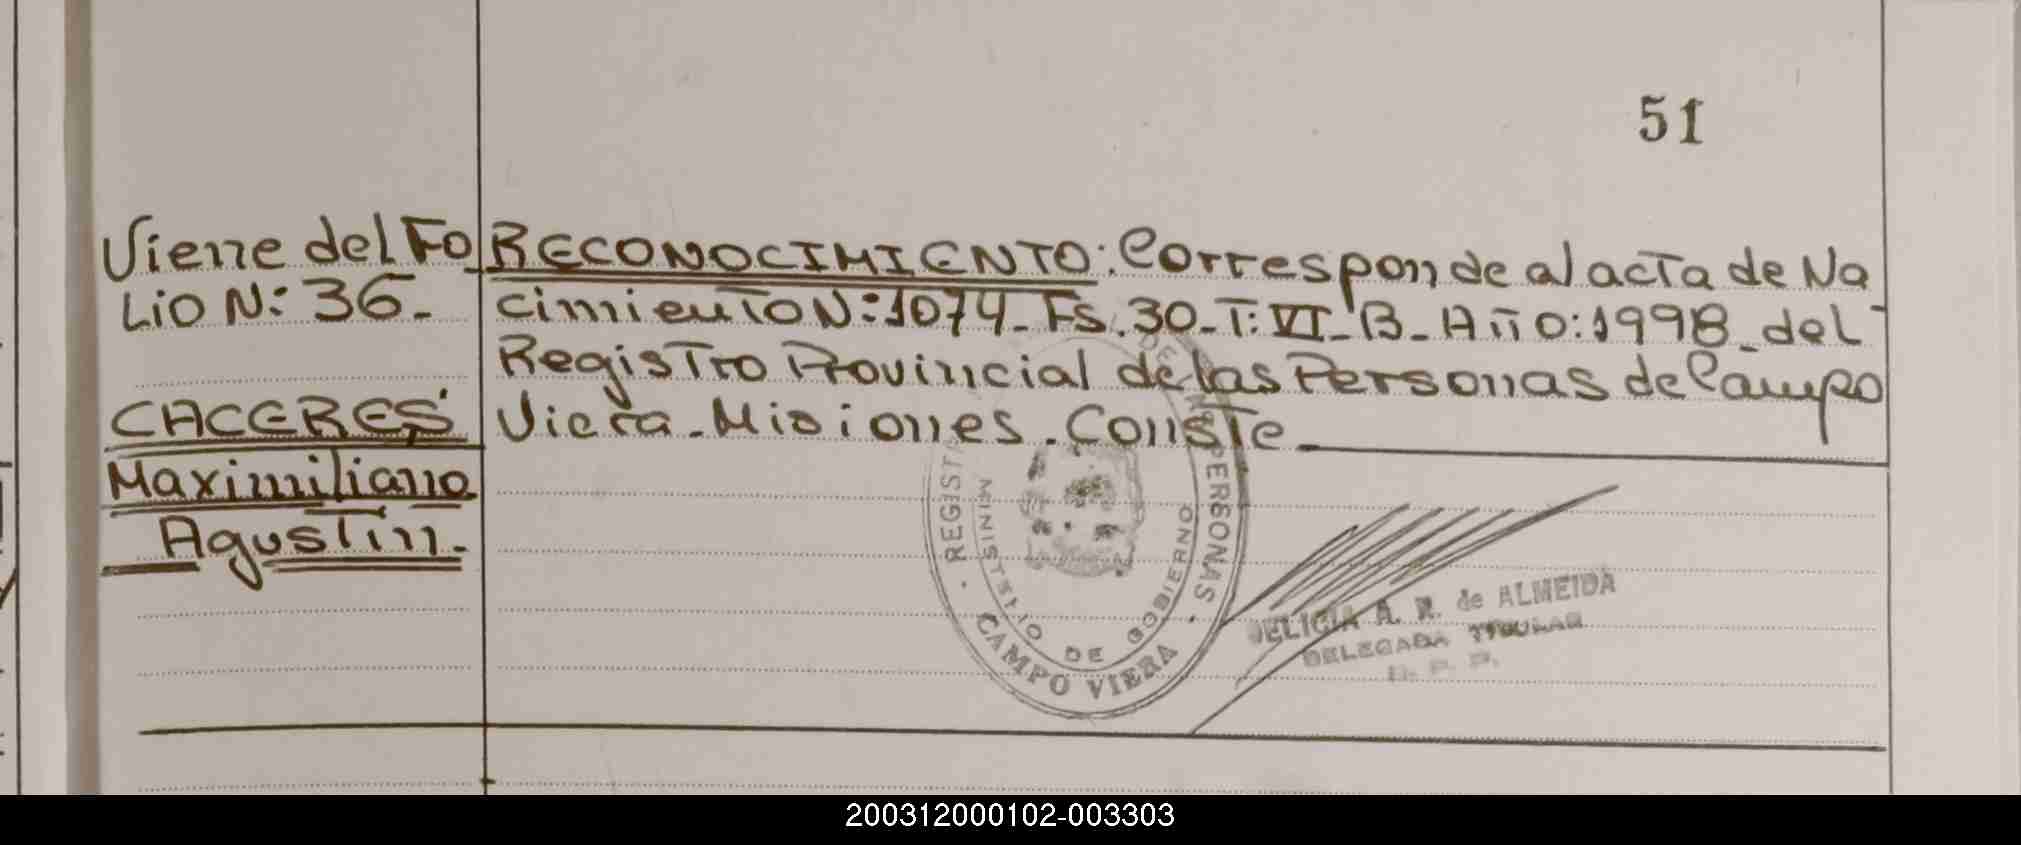 51
Viene del Fo
Lio N: 36.-
CACERES
Maximiliano
Agustin.-
RECONOCIMIENTO: Corresponde al acta de Na
cimiento N: 1074- Fs. 30- T: VI- B- Año: 1998- del
Registro Provincial de las Personas de Campo
Viera- Misiones. Conste
REGISTRO DE LAS PERSONAS
MINISTERIO DE GOBIERNO
CAMPO VIERA
DELICIA A. R. de ALMEIDA
DELEGADA TITULAR
R. P. P.
200312000102-003303